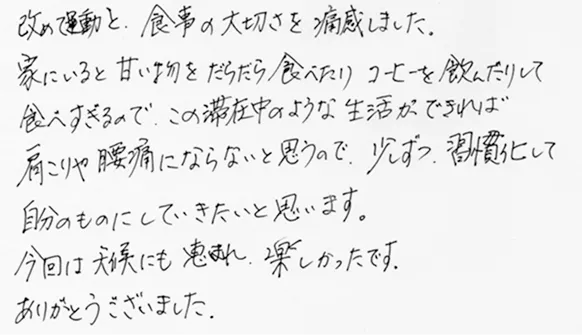 改めて運動と、食事の大切さを痛感しました。
家にいると甘い物をだらだら食べたり コーヒーを飲んだりして
食べすぎるので、この滞在中のような生活ができれば
肩こりや腰痛にならないと思うので、少しずつ、習慣化して
自分のものにしていきたいと思います。
今回は天候にも恵まれ、楽しかったです。
ありがとうございました。